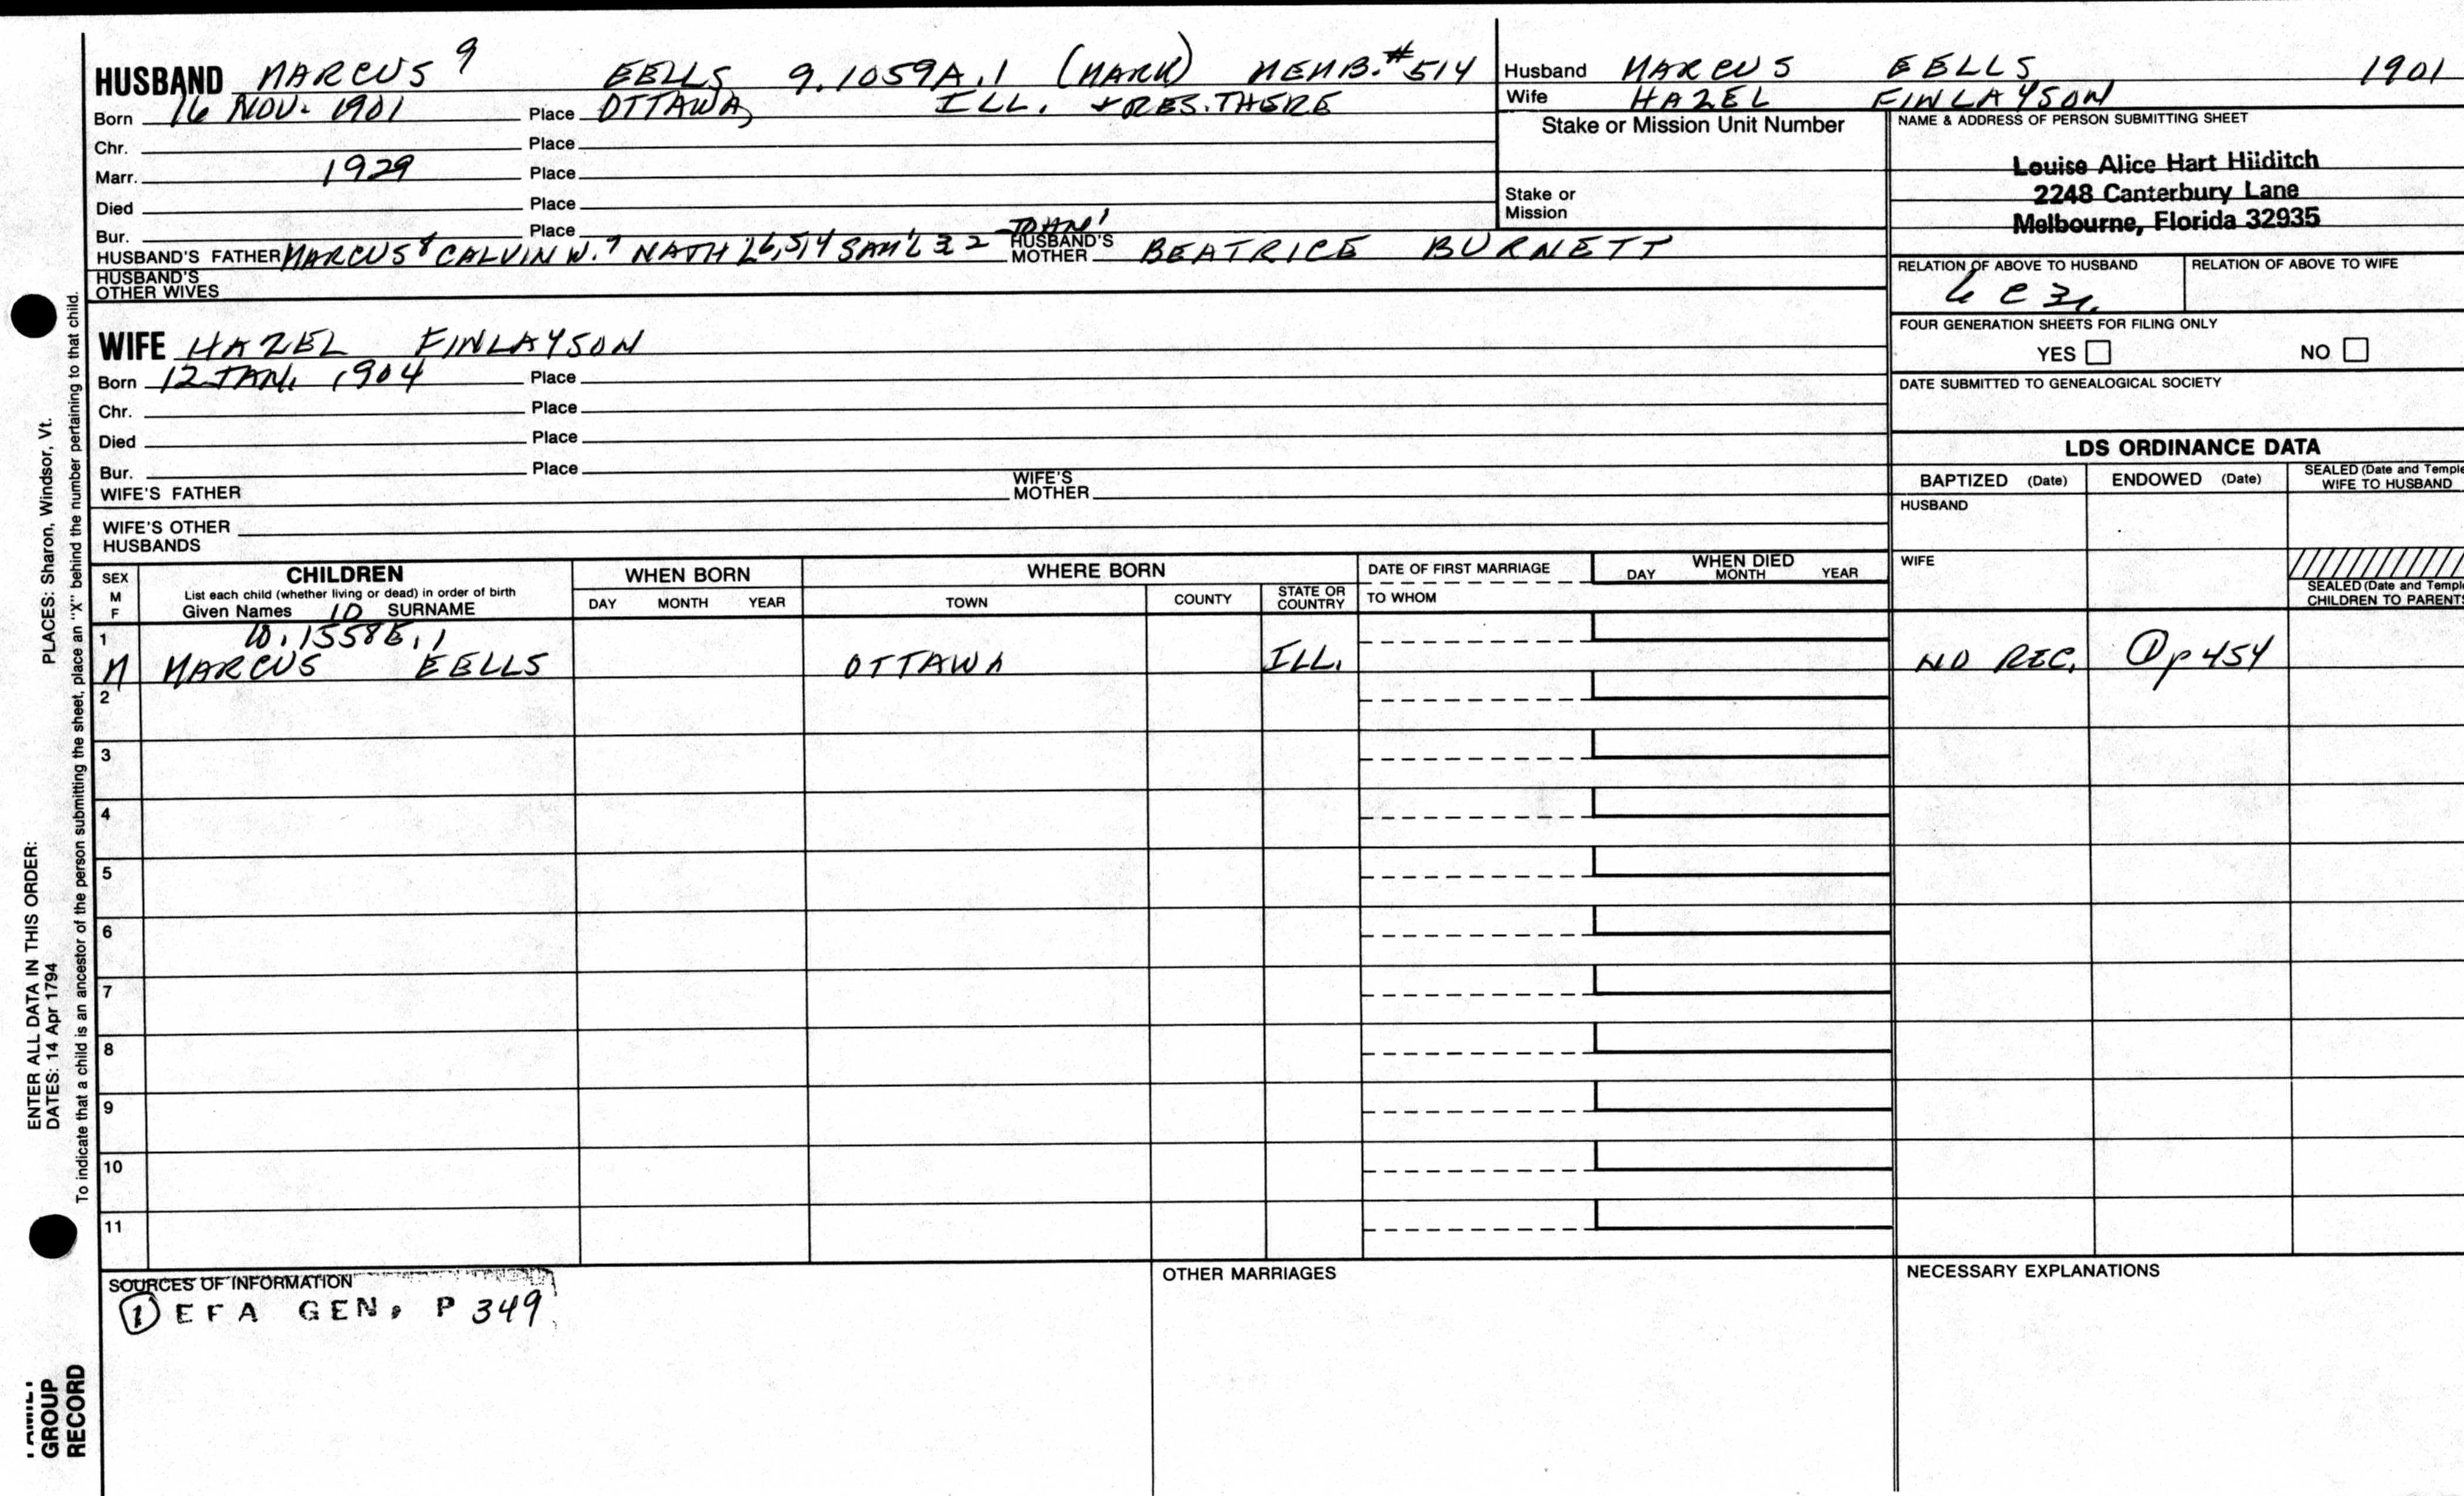 HUSBAND MARCUS 9 EELLS 9.1059A.1 (MARK) MEMB.#514
Born 16 NOV. 1901 Place OTTAWA, ILL. + RES. THERE
Chr. Place
Marr. 1929 Place
Died Place
Bur. Place
HUSBAND'S FATHER MARCUS 8 CALVIN W. 7 NATH'L 6,5,4 SAM'L 3 2 JOHN 1 HUSBAND'S MOTHER BEATRICE BURNETT
HUSBAND'S OTHER WIVES
WIFE HAZEL FINLAYSON
Born 12 JAN. 1904 Place
Chr. Place
Died Place
Bur. Place
WIFE'S FATHER WIFE'S MOTHER
WIFE'S OTHER HUSBANDS
Husband MARCUS EELLS 1901
Wife HAZEL FINLAYSON
Stake or Mission Unit Number
Stake or Mission
NAME & ADDRESS OF PERSON SUBMITTING SHEET
Louise Alice Hart Hilditch
2248 Canterbury Lane
Melbourne, Florida 32935
RELATION OF ABOVE TO HUSBAND RELATION OF ABOVE TO WIFE
FOUR GENERATION SHEETS FOR FILING ONLY
YES NO
DATE SUBMITTED TO GENEALOGICAL SOCIETY
LDS ORDINANCE DATA
BAPTIZED (Date) ENDOWED (Date) SEALED (Date and Temple
WIFE TO HUSBAND
HUSBAND
WIFE
SEALED (Date and Temple
CHILDREN TO PARENTS
SEX M F
CHILDREN
List each child (whether living or dead) in order of birth
Given Names 10 SURNAME
WHEN BORN
DAY MONTH YEAR
WHERE BORN
TOWN COUNTY STATE OR COUNTRY
DATE OF FIRST MARRIAGE
TO WHOM
WHEN DIED
DAY MONTH YEAR
1 10.1558E.1
M MARCUS EELLS OTTAWA ILL. NO REC. ① p 454
2
3
4
5
6
7
8
9
10
11
SOURCES OF INFORMATION
① EFA GEN, P 349
OTHER MARRIAGES
NECESSARY EXPLANATIONS
PLACES: Sharon, Windsor, Vt.
To indicate that a child is an ancestor of the person submitting the sheet, place an "X" behind the number pertaining to that child.
ENTER ALL DATA IN THIS ORDER:
DATES: 14 Apr 1794
GROUP
RECORD